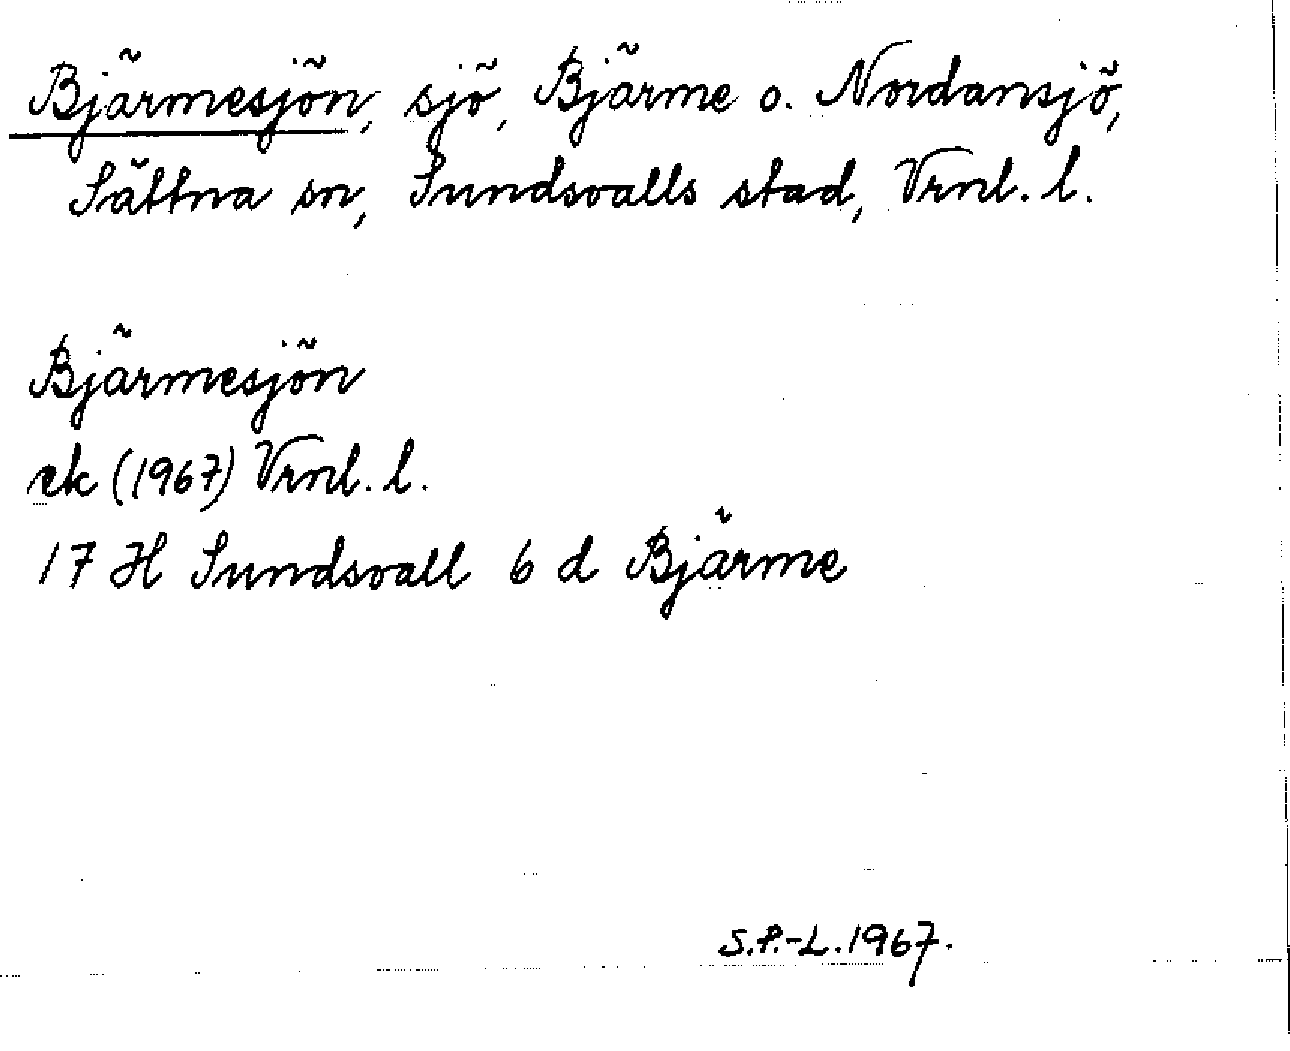 Bjärmesjön, sjö, Bjärme o. Nordansjö,
Sättna sn, Sundsvalls stad, Vrnl. l.
Bjärmesjön
ek (1967) Vrnl. l.
17 H Sundsvall 6 d Bjärme
S.P.-L. 1967.